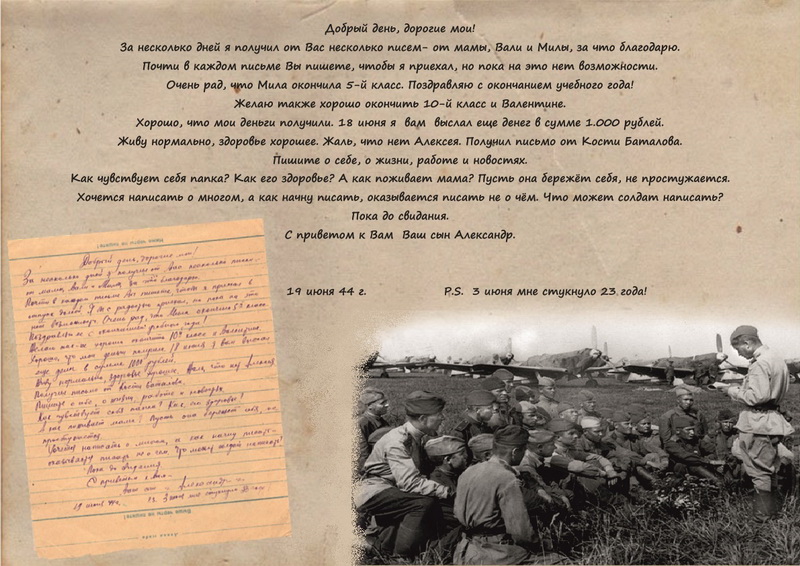 Добрый день, дорогие мои!
За несколько дней я получил от Вас несколько писем- от мамы, Вали и Милы, за что благодарю.
Почти в каждом письме Вы пишете, чтобы я приехал, но пока на это нет возможности.
Очень рад, что Мила окончила 5-й класс. Поздравляю с окончанием учебного года!
Желаю также хорошо окончить 10-й класс и Валентине.
Хорошо, что мои деньги получили. 18 июня я вам выслал еще денег в сумме 1.000 рублей.
Живу нормально, здоровье хорошее. Жаль, что нет Алексея. Полунил письмо от Кости Баталова.
Пишите о себе, о жизни, работе и новостях.
Как чувствует себя папка? Как его здоровье? А как поживает мама? Пусть она бережёт себя, не простужается.
Хочется написать о многом, а как начну писать, оказывается писать не о чём. Что может солдат написать?
Пока до свидания.
С приветом к Вам Ваш сын Александр.
19 июня 44 г. P.S. 3 июня мне стукнуло 23 года!
Добрый день, дорогие мои!
За несколько дней я получил от Вас несколько писем-
от мамы, Вали и Милы, за что благодарю.
Почти в каждом письме
что Мила окончила 5й класс.
Поздравляю с окончанием учебного года!
Желаю также хорошо окончить 10й класс и Валентине.
Хорошо, что мои деньги получили. 18 июня я вам выслал
еще денег в сумме 1000 рублей.
Живу нормально, здоровье хорошее. Жаль, что нет Алексея
Получил письмо от Кости Баталова.
Пишите о себе, о жизни, работе и новостях
Как чувствует себя папка? Как его здоровье?
А как поживает мама? Пусть она бережет себя, не
простужается.
Хочется написать о многом, а как начну писать-
оказывается писать не о чем. Что может солдат написать?
Пока до свидания
С приветом к Вам
Ваш сын Александр
19 июня 44г. P.S. 3 июня мне стукнуло 23 года